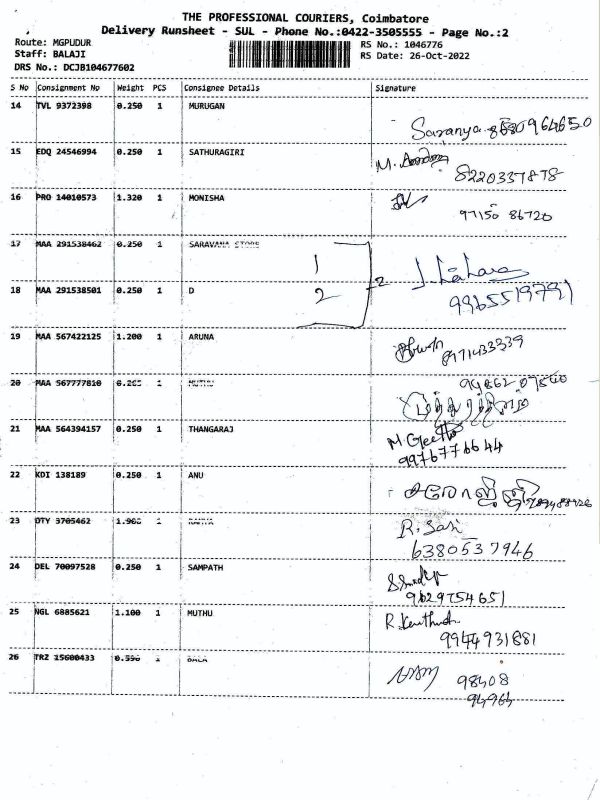 THE PROFESSIONAL COURIERS, Coimbatore
Delivery Runsheet - SUL - Phone No.:0422-3505555 - Page No.:2
Route: MGPUDUR
Staff: BALAJI
DRS No.: DCJB104677602
RS No.: 1046776
RS Date: 26-Oct-2022
S No Consignment No Weight PCS Consignee Details Signature
14 TVL 9372398 0.250 1 MURUGAN
Saranya
15 EDQ 24546994 0.250 1 SATHURAGIRI
M. 8220337878
16 PRO 14010573 1.320 1 MONISHA
97150 86720
17 MAA 291538462 0.250 1 SARAVANA STORE
1
18 MAA 291538501 0.250 1 D
2 2
9965519791
19 MAA 567422125 1.200 1 ARUNA
8971433339
20 MAA 567777810 1 MUTHU
21 MAA 564394157 0.250 1 THANGARAJ
M. Geetha
9976776644
22 KDI 138189 0.250 1 ANU
23 DTY 3705462 1
R. Sasi
6380537946
24 DEL 70097528 0.250 1 SAMPATH
9629754651
25 NGL 6885621 1.100 1 MUTHU
R.
9944931881
26 TRZ 15600433 0.590 1 BALA
98408
94964